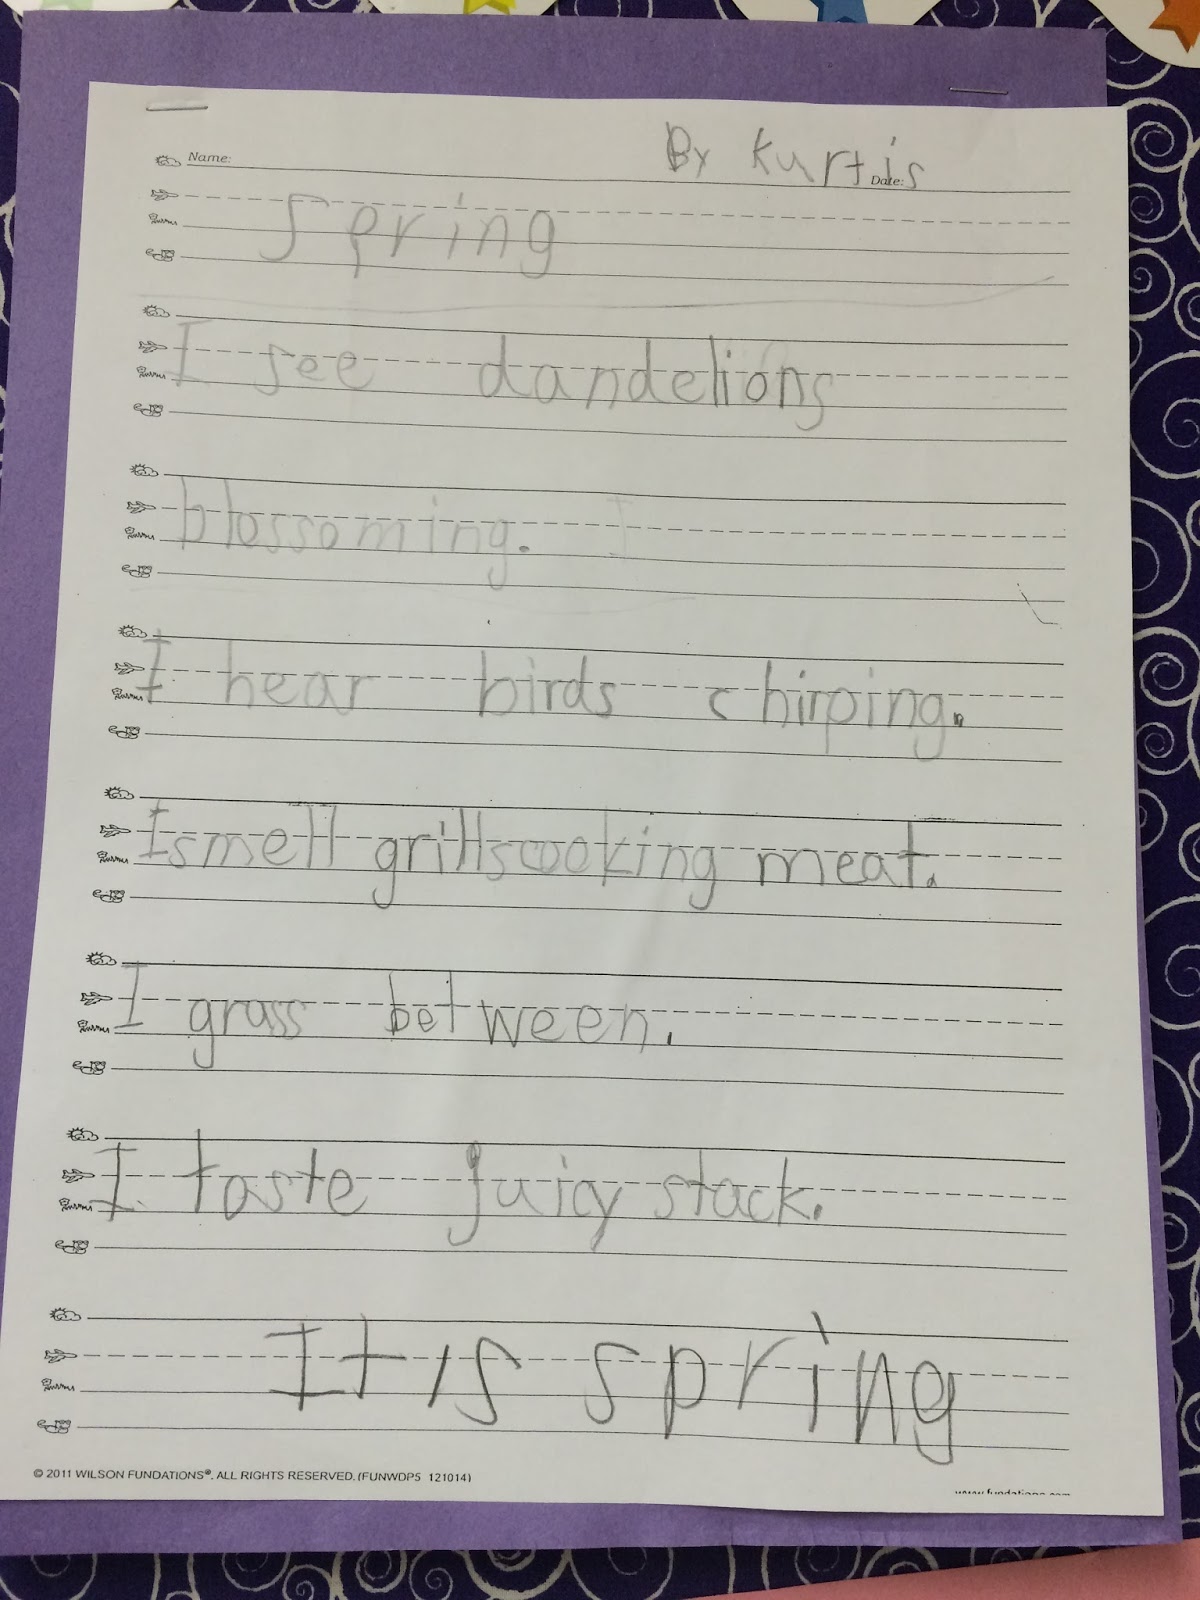 By Kurtis
Name: Date:
Spring
I see dandelions
blossoming. I
I hear birds chirping.
I smell grills cooking meat.
I grass between.
I taste juicy stack.
It is spring
© 2011 WILSON FUNDATIONS®. ALL RIGHTS RESERVED. (FUNWDP5 121014)
www.fundations.com